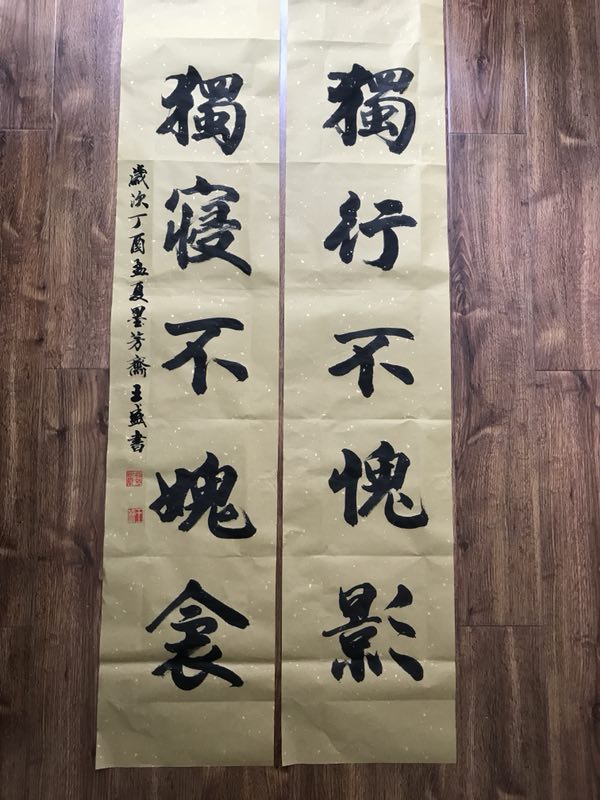 獨行不愧影
獨寢不媿衾
歲次丁酉孟夏墨芳齋王盛書